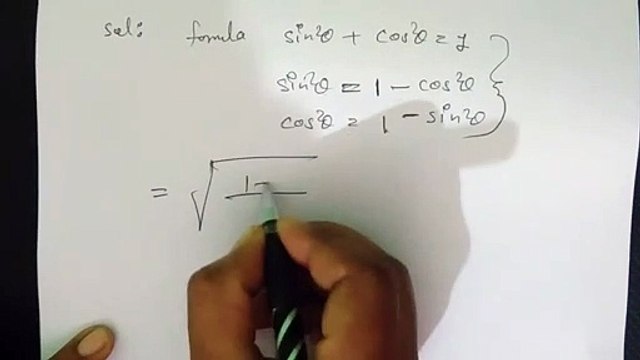 sol: fomula sin²θ + cos²θ = 1
sin²θ = 1 - cos²θ
cos²θ = 1 - sin²θ
= √ 1-